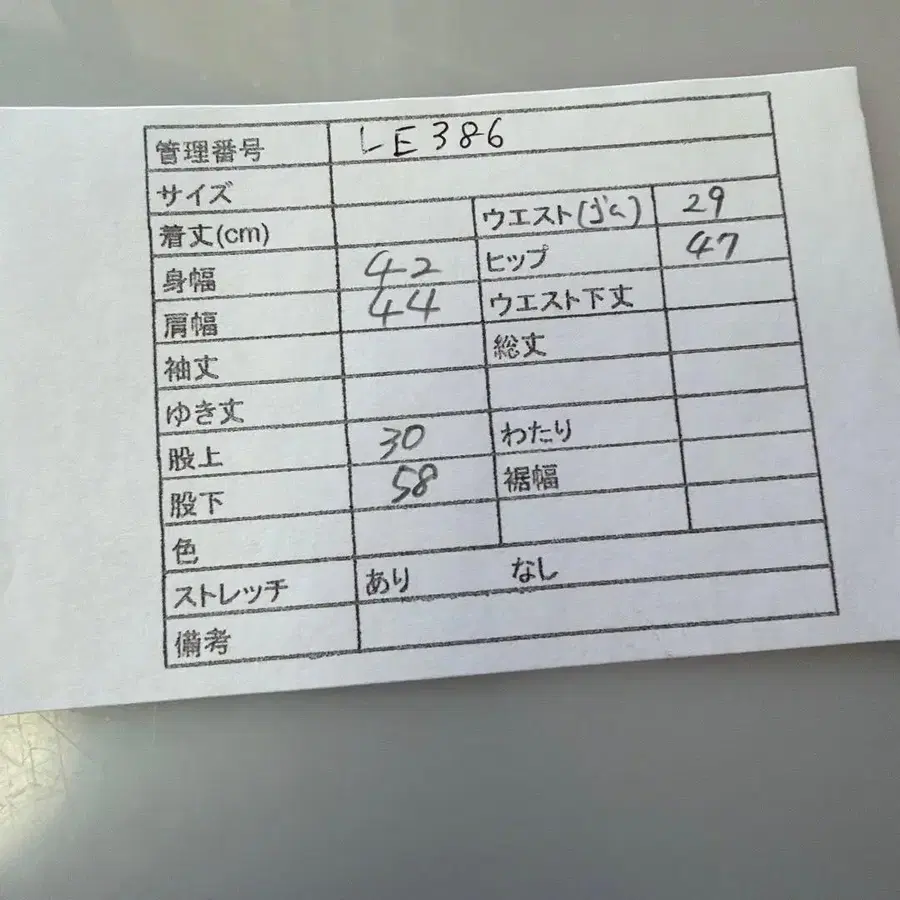 管理番号 LE386
サイズ
着丈(cm) ウエスト(ゴム) 29
身幅 42 ヒップ 47
肩幅 44 ウエスト下丈
袖丈 総丈
ゆき丈
股上 30 わたり
股下 58 裾幅
色
ストレッチ あり なし
備考